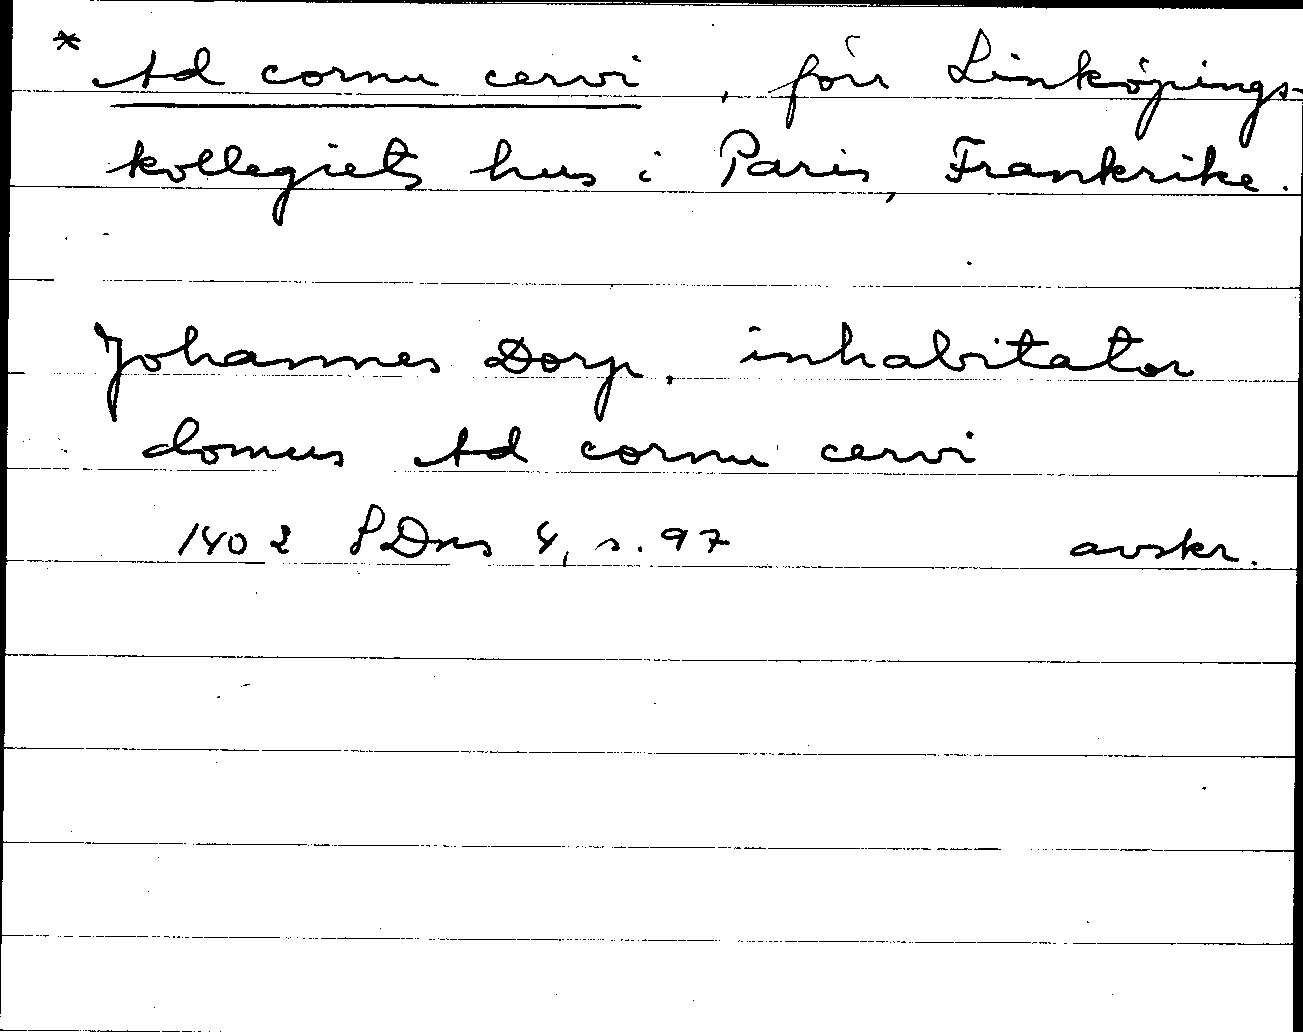 * Ad cornu cervi, förr Linköpings-
kollegiets hus i Paris, Frankrike.
Johannes Dorp, inhabitator
domus Ad cornu cervi
1402 PDns 4, s. 97 avskr.